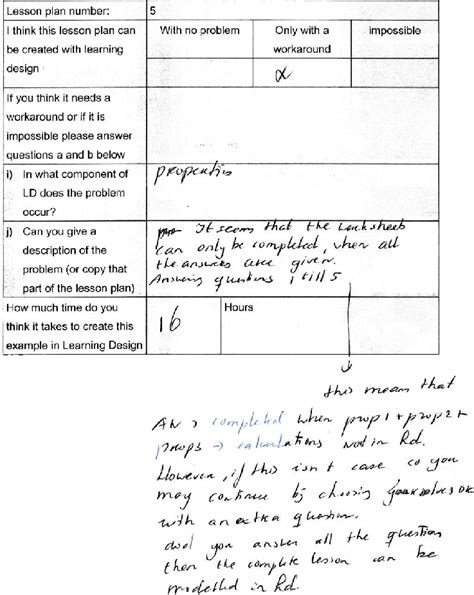 Lesson plan number: 5
I think this lesson plan can With no problem Only with a impossible
be created with learning workaround
design α
If you think it needs a
workaround or if it is
impossible please answer
questions a and b below
i) In what component of properties
LD does the problem
occur?
j) Can you give a It seems that the worksheets
description of the can only be completed, when all
problem (or copy that the answers are given.
part of the lesson plan) Answering questions 1 till 5
How much time do you 16 Hours
think it takes to create this
example in Learning Design
this means that
completed when prop1 + prop2 +
prop3 → calculations not in
However, if this isn't case so you
may continue by choosing
with an extra question.
you answer all the question
then the complete lesson can be
modelled in